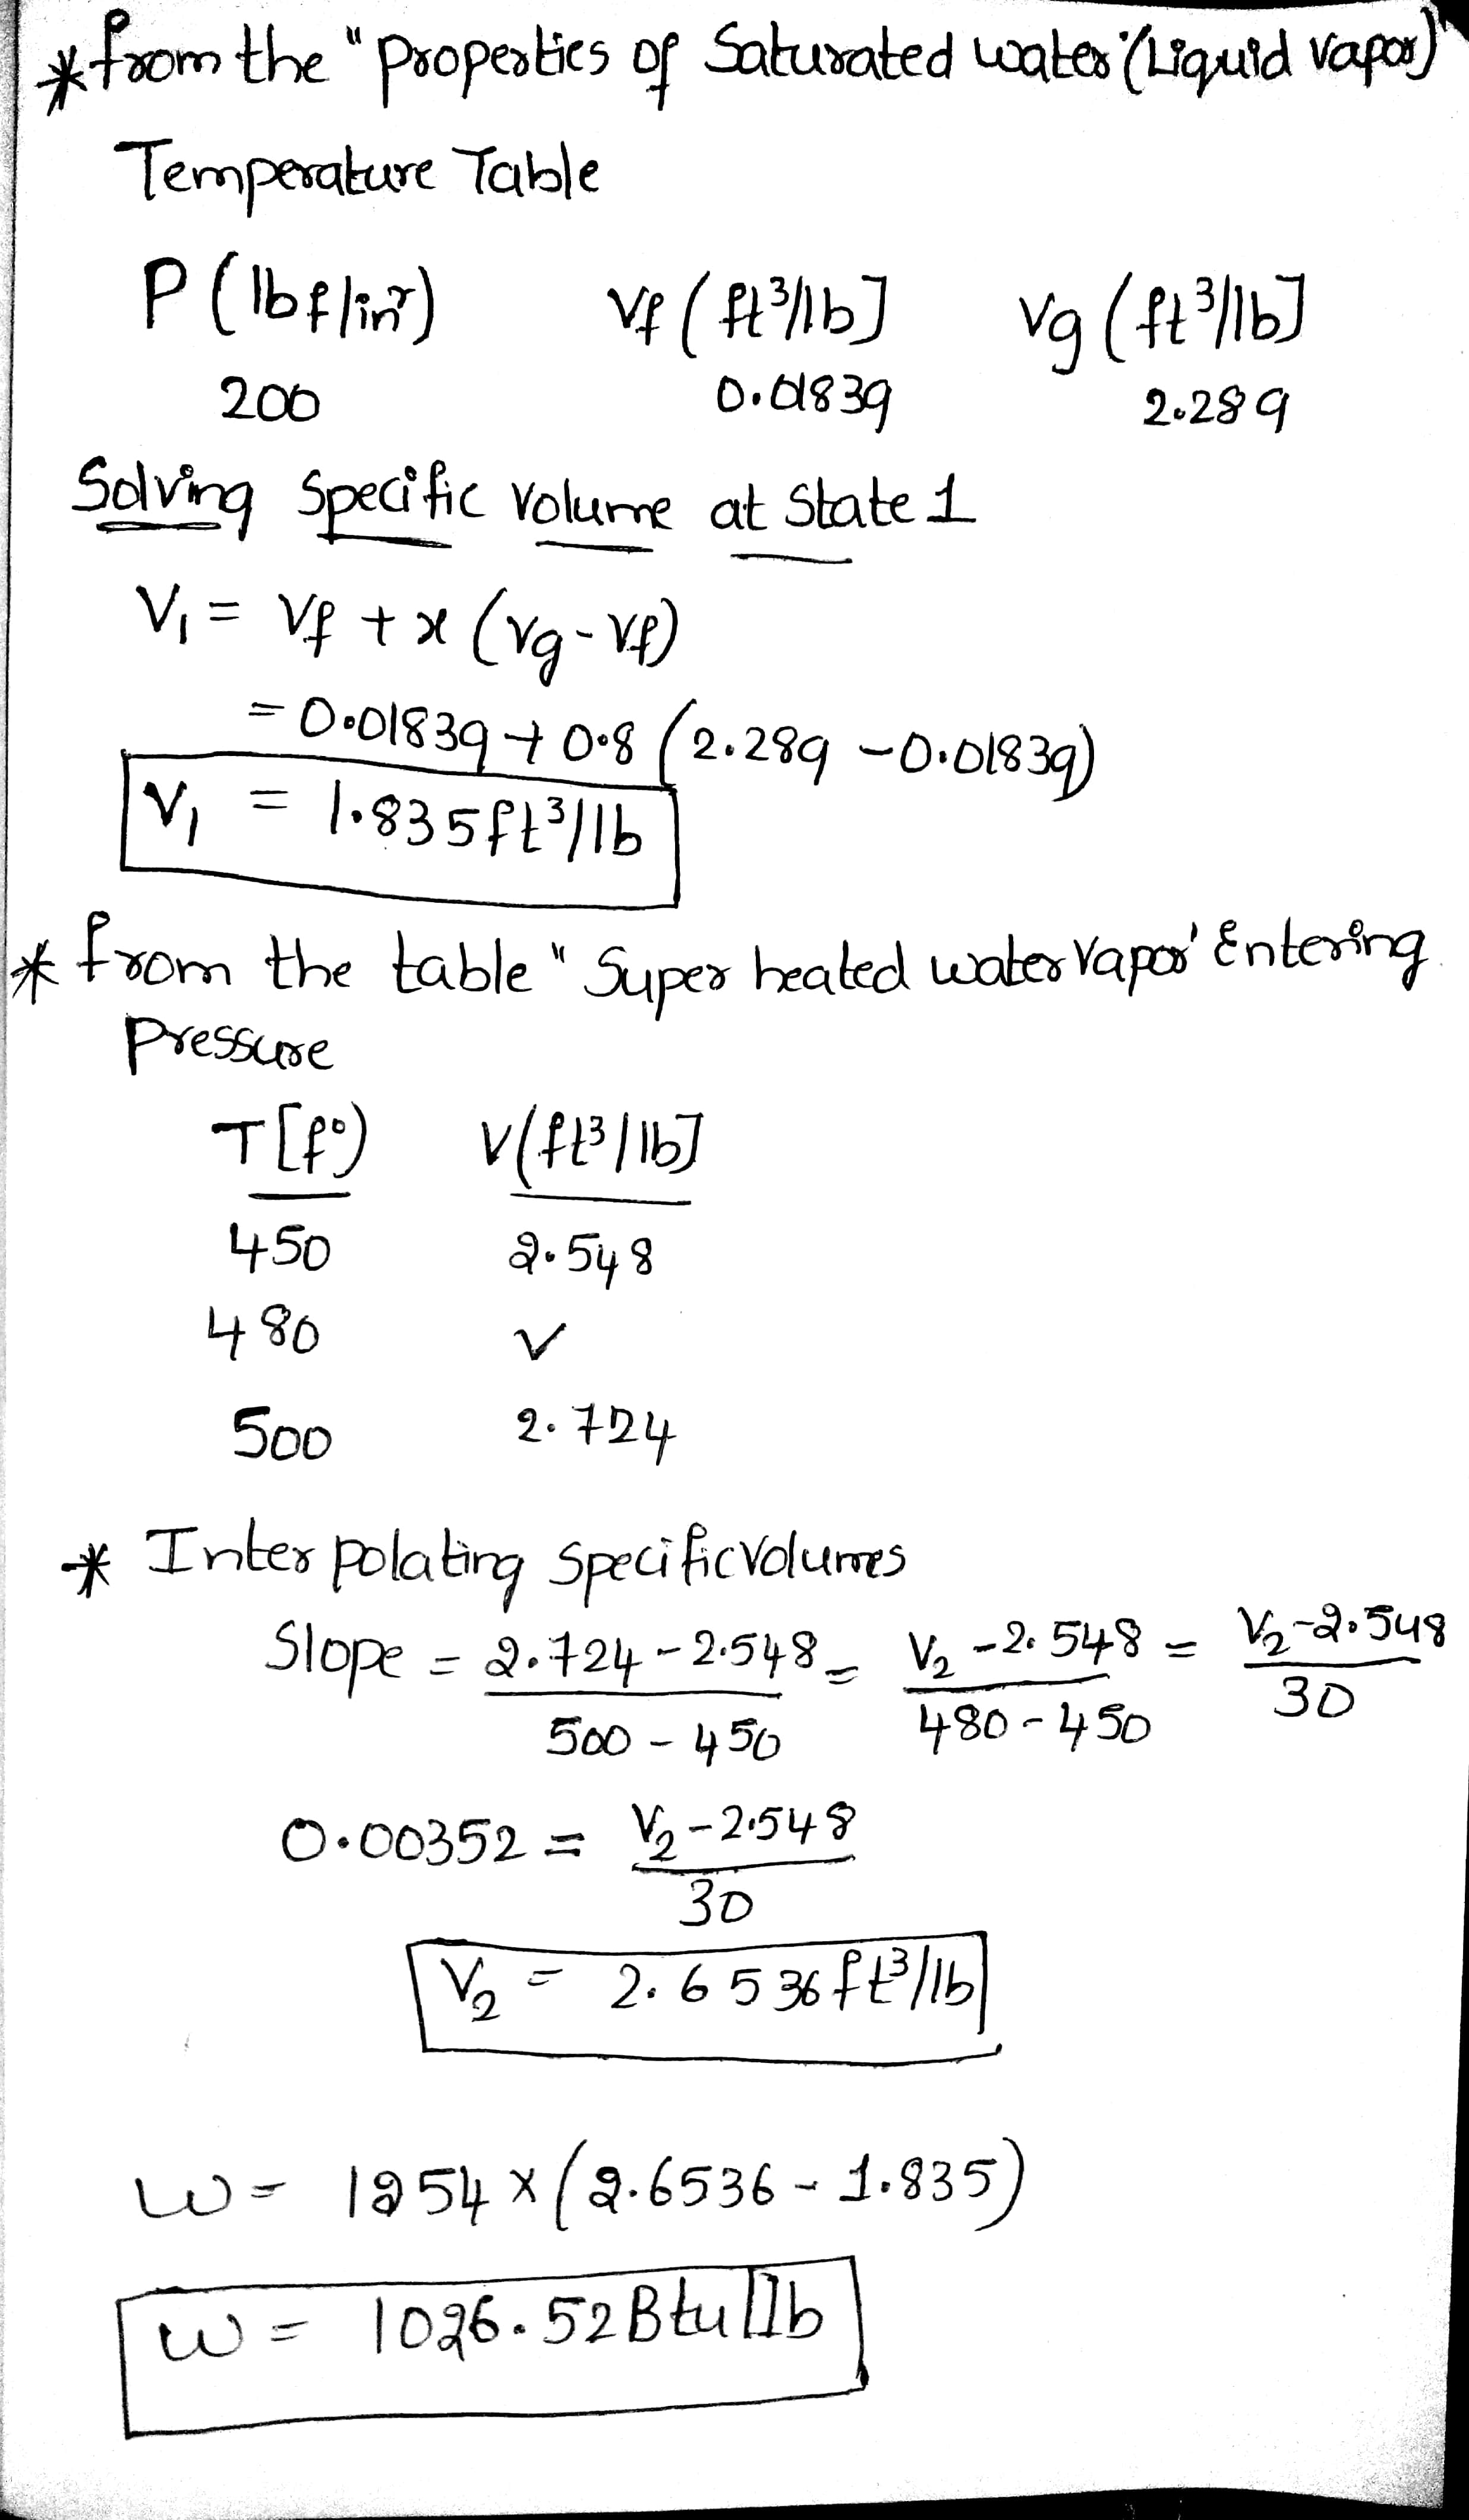 * from the "Properties of Saturated water"(Liquid vapor)"
Temperature Table
P (lbf/in²) vf (ft³/lb] vg (ft³/lb]
200 0.01839 2.289
Solving specific volume at State 1
V₁ = Vf + x (vg - vf)
= 0.01839 + 0.8 (2.289 - 0.01839)
V₁ = 1.835 ft³/lb
* from the table "Super heated water vapor' Entering
Pressure
T[f°) V(ft³/lb]
450 2.548
480 v
500 2.724
* Inter polating specific volumes
Slope = 2.724 - 2.548 / 500 - 450 = V₂ - 2.548 / 480 - 450 = V₂ - 2.548 / 30
0.00352 = V₂ - 2.548 / 30
V₂ = 2.6536 ft³/lb
W = 1254 x (2.6536 - 1.835)
W = 1026.52 Btu/lb